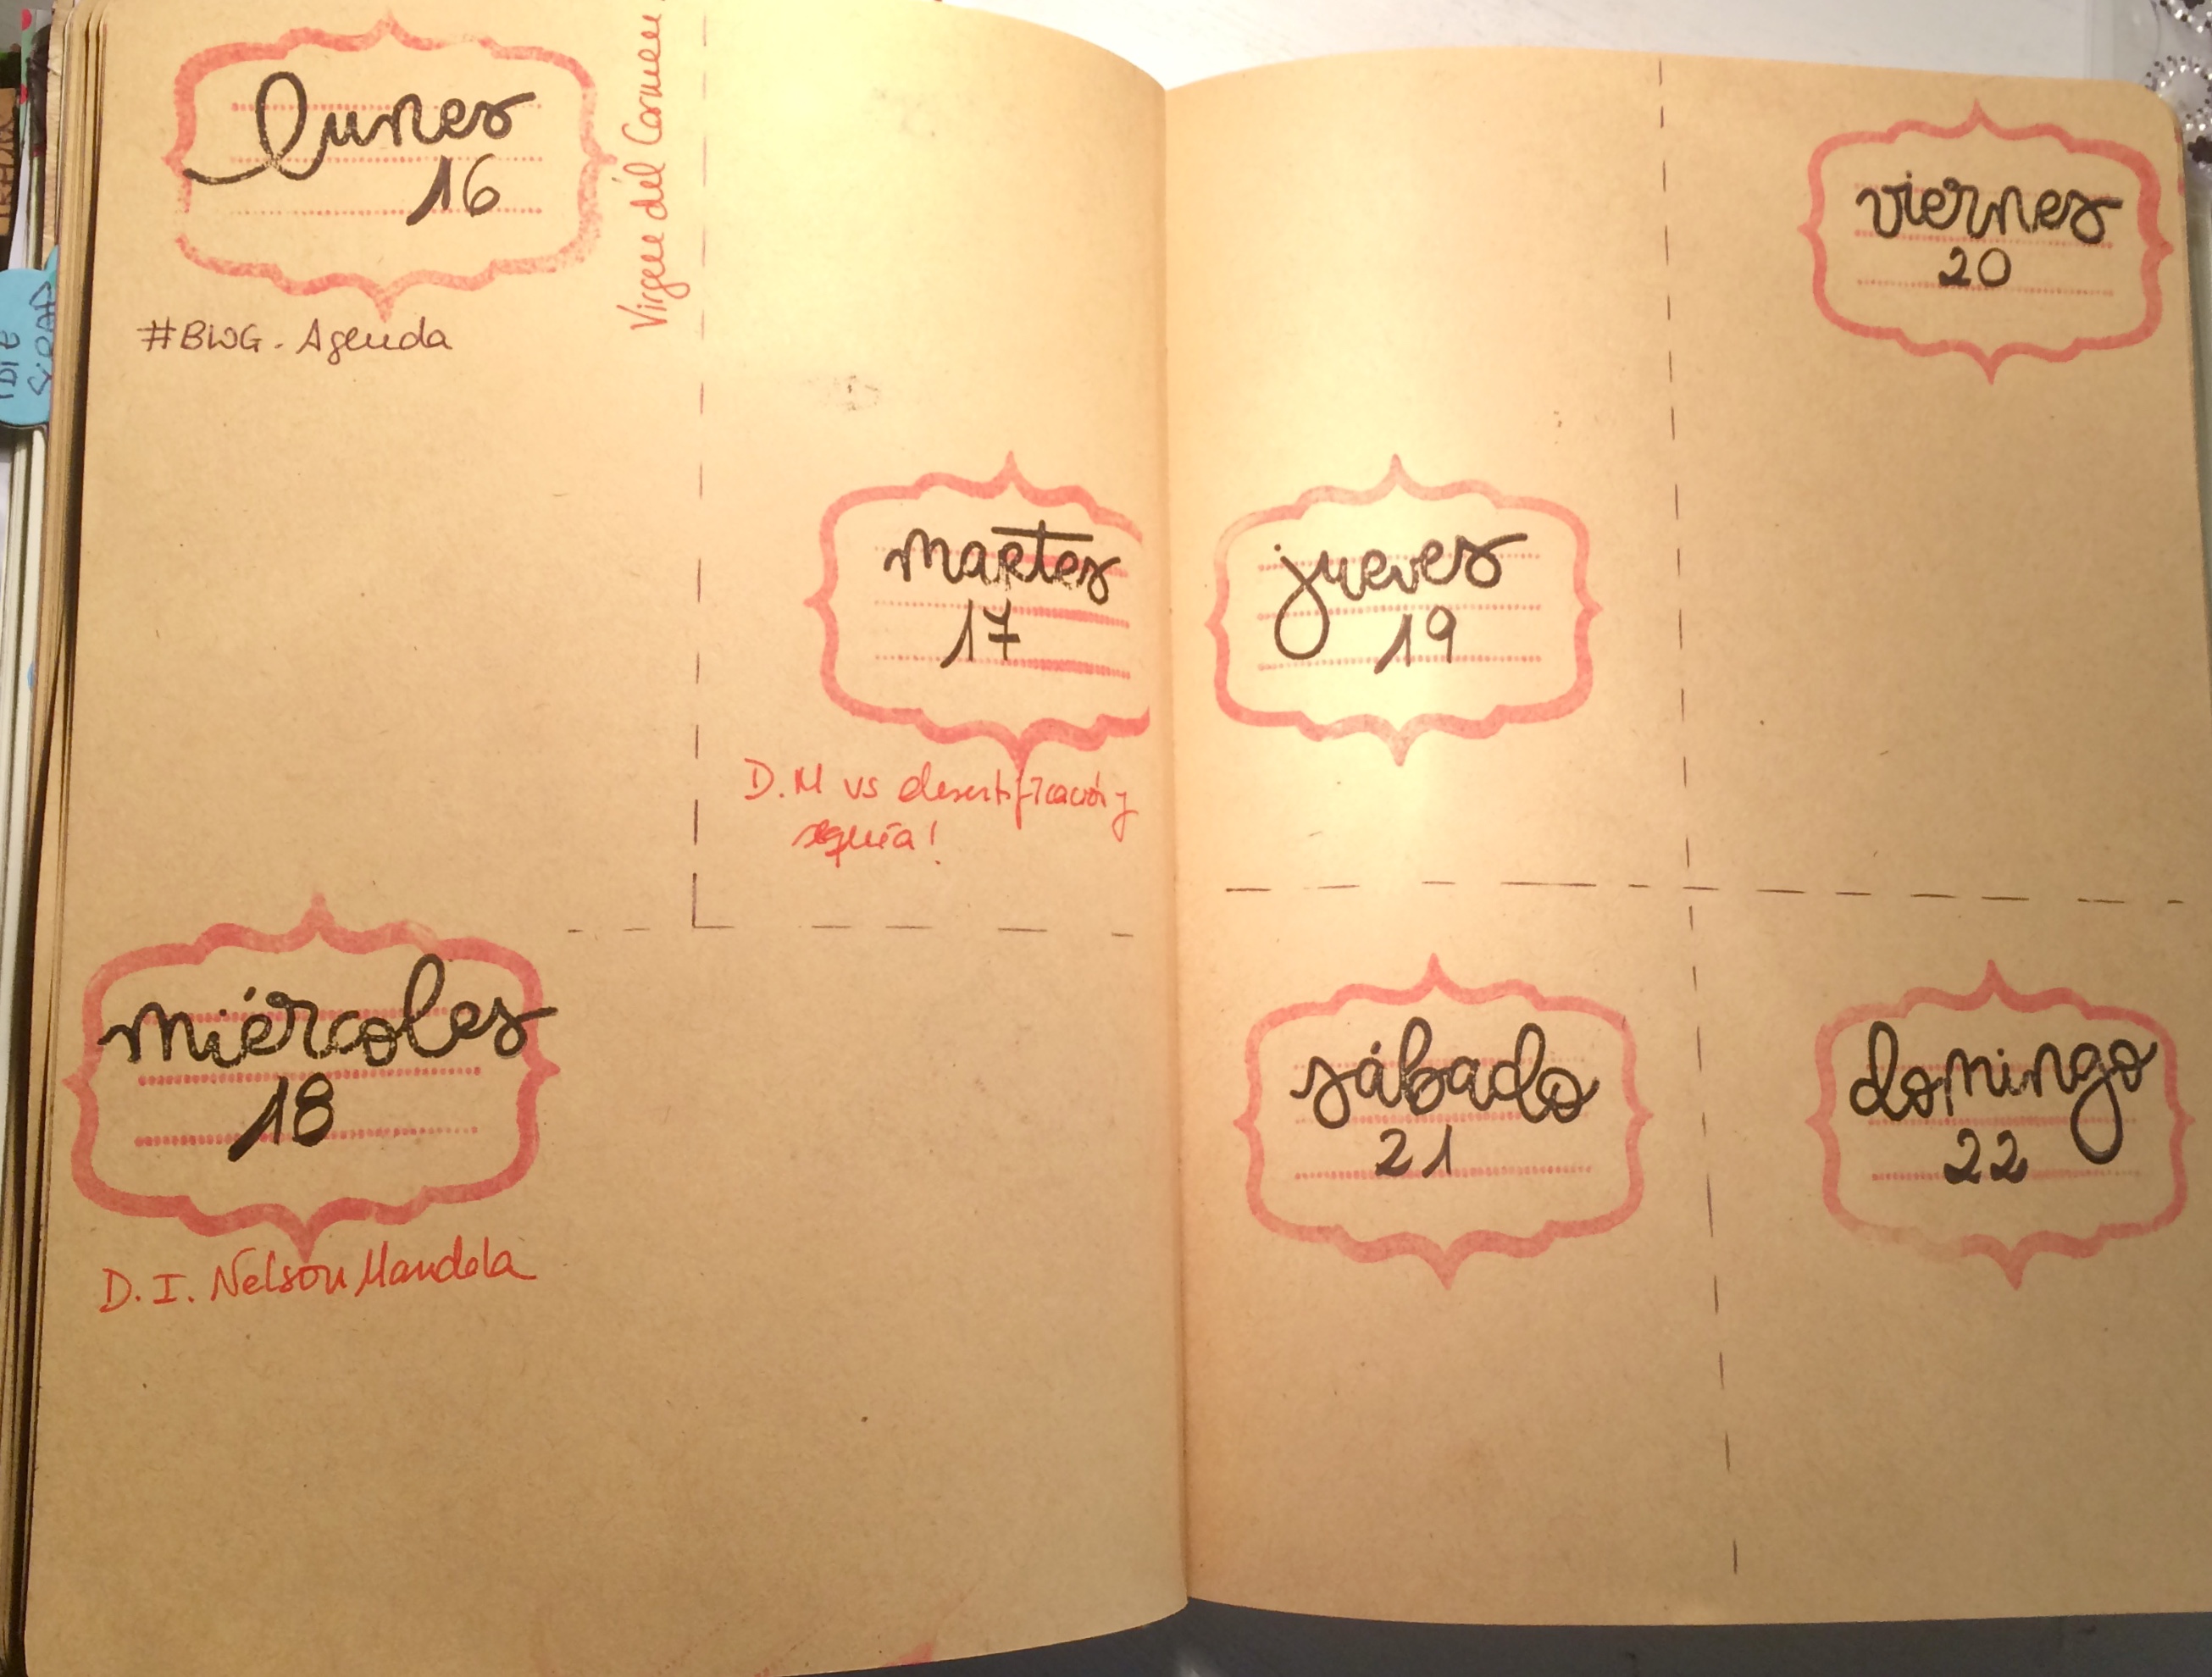 lunes
16
Virgen del Carmen
#BWG. Agenda
martes
17
D.M vs desertificación y
sequía!
miércoles
18
D. I. Nelson Mandela
jueves
19
viernes
20
sábado
21
domingo
22